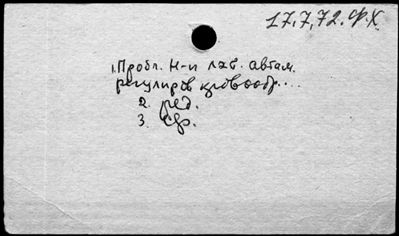 17.7.72. Ф.Х
1. Пробл. н-и лав. автом.
регулиров кровообр....
2. ред.
3. Ср.